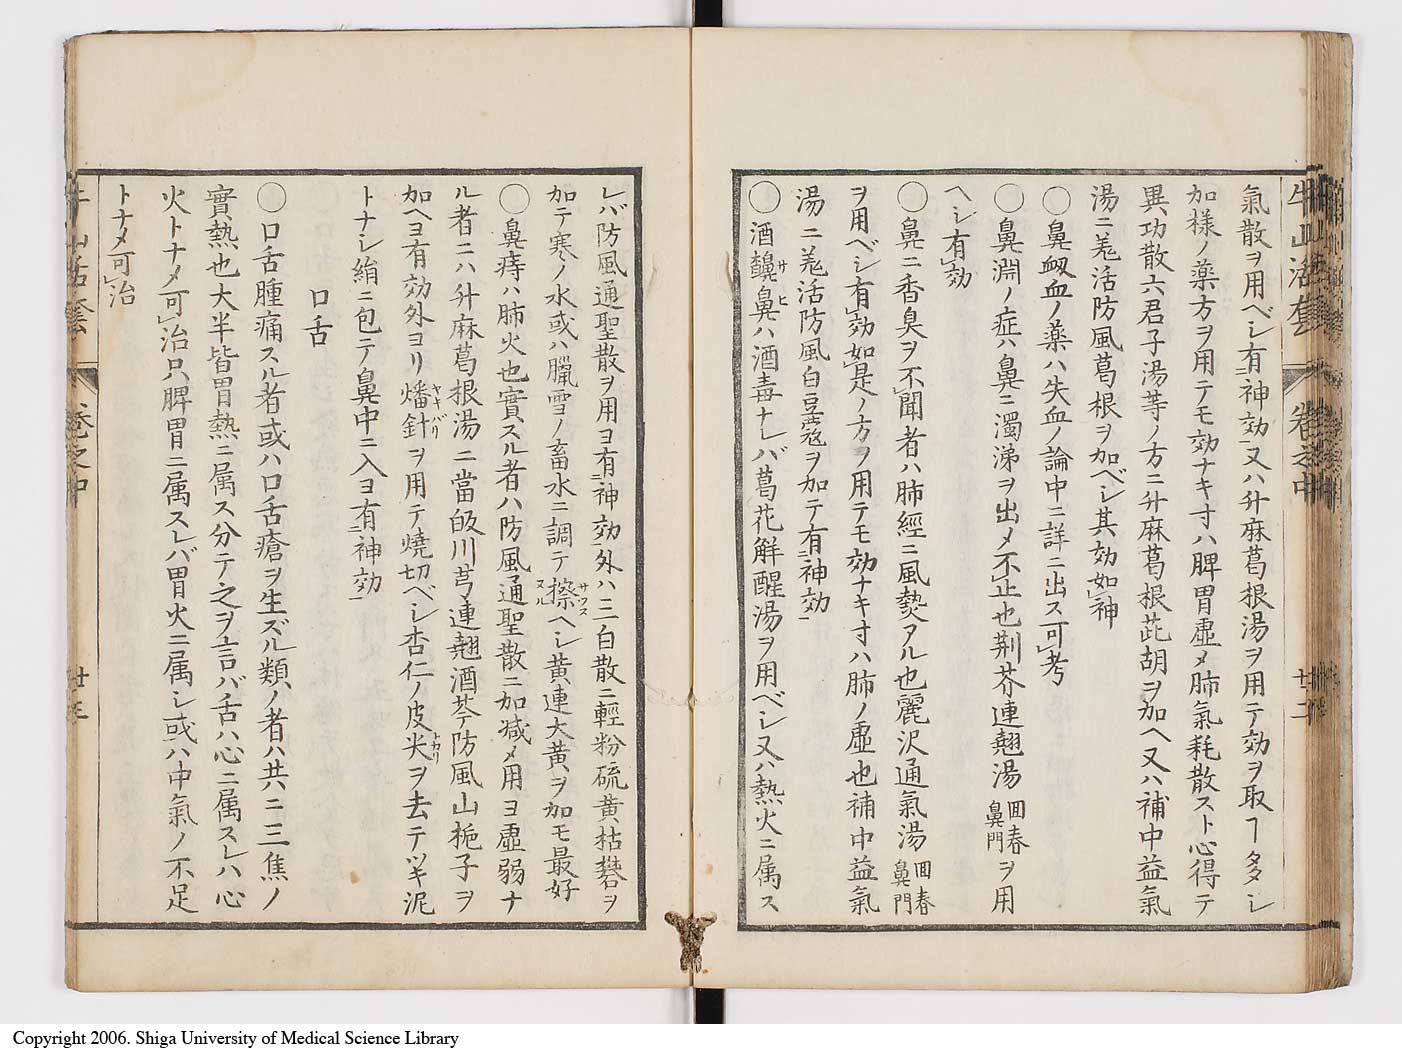 牛山活套 卷之中 廿二
氣散ヲ用ベシ有神効又ハ升麻葛根湯ヲ用テ効ヲ取ヿ多シ
加様ノ薬方ヲ用テモ効ナキ寸ハ脾胃虚メ肺氣耗散スト心得テ
異功散六君子湯等ノ方ニ升麻葛根茈胡ヲ加ヘ又ハ補中益氣
湯ニ羗活防風葛根ヲ加ベシ其効如神
〇鼻衂血ノ薬ハ失血ノ論中ニ詳ニ出ス可考
〇鼻淵ノ症ハ鼻ニ濁涕ヲ出メ不止也荆芥連翹湯回春鼻門ヲ用
ヘシ有効
〇鼻ニ香臭ヲ不聞者ハ肺經ニ風熱アル也麗沢通氣湯回春鼻門
ヲ用ベシ有効如是ノ方ヲ用テモ効ナキ寸ハ肺ノ虚也補中益氣
湯ニ羗活防風白豆蔻ヲ加テ有神効
〇酒齇鼻サヒハ酒毒ナレバ葛花解醒湯ヲ用ベシ又ハ熱火ニ属ス
レバ防風通聖散ヲ用ヨ有神効外ハ三白散ニ輕粉硫黄枯礬ヲ
加テ寒ノ水或ハ臘雪ノ畜水ニ調テ擦サッスヌルヘシ黄連大黄ヲ加モ最好
〇鼻痔ハ肺火也實スル者ハ防風通聖散ニ加减メ用ヨ虚弱ナ
ル者ニハ升麻葛根湯ニ當皈川芎連翹酒芩防風山梔子ヲ
加ヘヨ有効外ヨリ燔針ヤキバリヲ用テ燒切ベシ杏仁ノ皮尖トカリヲ去テツキ泥
トナレ絹ニ包テ鼻中ニ入ヨ有神効
口舌
〇口舌腫痛スル者或ハ口舌瘡ヲ生ズル類ノ者ハ共ニ三焦ノ
實熱也大半皆胃熱ニ属ス分テ之ヲ言バ舌ハ心ニ属スレハ心
火トナメ可治只脾胃ニ属スレバ胃火ニ属シ或ハ中氣ノ不足
トナメ可治
牛山活套 卷之中 廿三
Copyright 2006. Shiga University of Medical Science Library